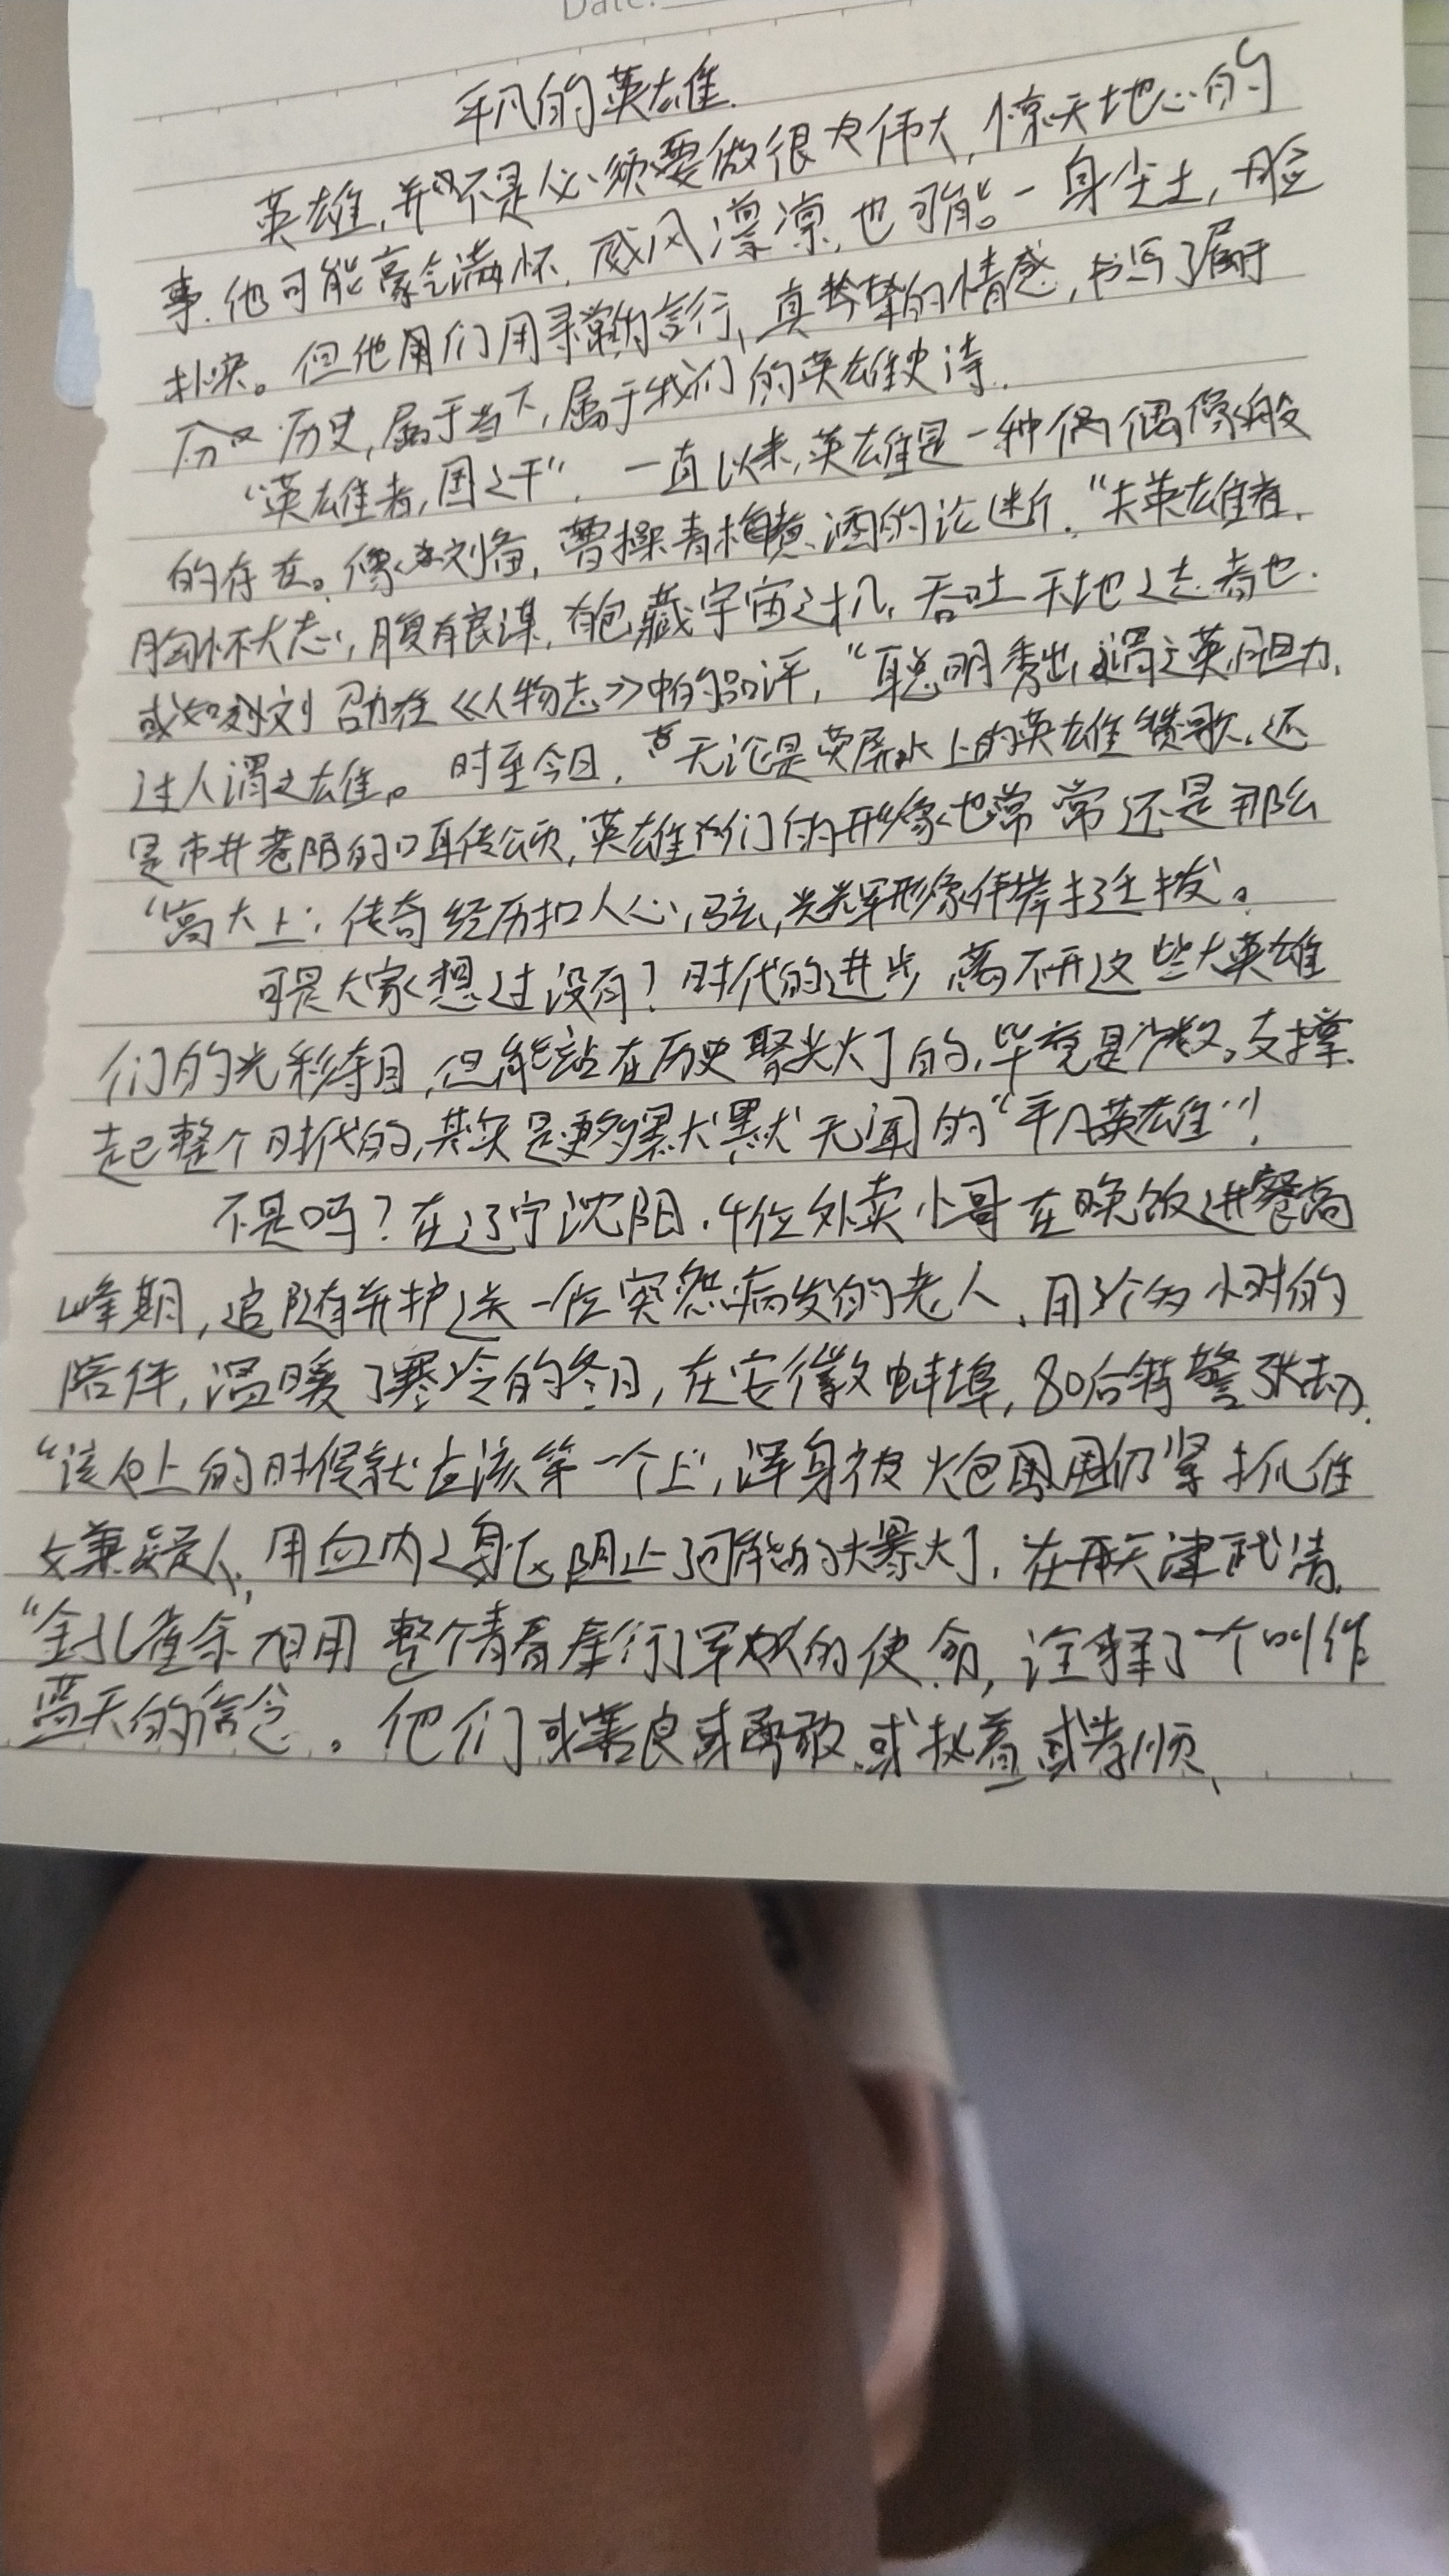 Date:
平凡的英雄.
英雄,并不是必须要做很大伟大,惊天地心的
事.他可能豪气满怀,威风凛凛,也可能。一身尘土,脸
扑实。但他们用寻常的言行,真挚的情感,书写了属于
历史,属于当下,属于我们的英雄史诗.
“英雄者,国之干”,一直以来,英雄是一种偶像般
的存在。像刘备,曹操青梅煮酒的论断.“夫英雄者.
胸怀大志,腹有良谋,有包藏宇宙之机,吞吐天地之志者也.
或如刘劭在《人物志》中的品评,“聪明秀出,谓之英,胆力
过人谓之雄。时至今日,无论是荧屏上的英雄赞歌,还
是市井巷陌的口耳传颂,英雄们的形像也常常还是那么
“高大上,传奇经历扣人心弦,光辉形象伟岸挺拔。
可是大家想过没有?时代的进步离不开这些大英雄
们的光彩夺目,但能站在历史聚光灯的,毕竟是少数。支撑
起整个时代的,其实是更多默默无闻的“平凡英雄”!
不是吗?在辽宁沈阳,4位外卖小哥在晚饭进餐高
峰期,追随并护送一位突然病发的老人,用3个多小时的
陪伴,温暖了寒冷的冬日,在安徽蚌埠,80后特警张劼,
“该上的时候就应该第一个上”,浑身被火包围仍紧抓住
嫌疑人,用血肉之躯阻止了可能的大爆炸,在天津武清,
“金孔雀余旭用整个青春奉行了军人的使命,诠释了一个叫作
蓝天的信念。他们或善良或勇敢,或执着或孝顺,